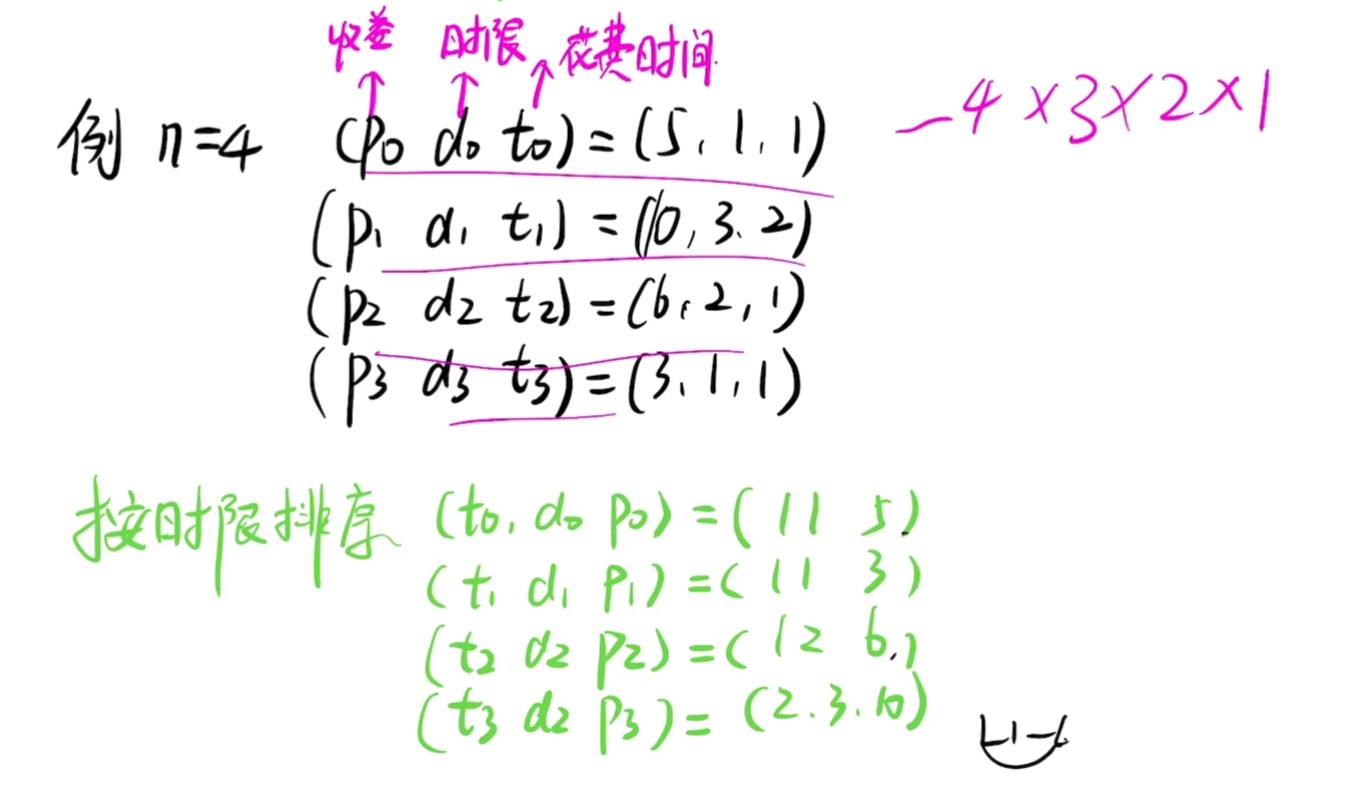 收益 时限 花费时间
例 n=4 (p0 d0 t0)=(5, 1, 1) 4×3×2×1
(p1 d1 t1)=(10, 3. 2)
(p2 d2 t2)=(6, 2, 1)
(p3 d3 t3)=(3, 1, 1)
按时限排序 (t0, d0 p0)=(1 1 5)
(t1 d1 p1)=(1 1 3)
(t2 d2 p2)=(1 2 6,)
(t3 d2 p3)=(2.3.10)